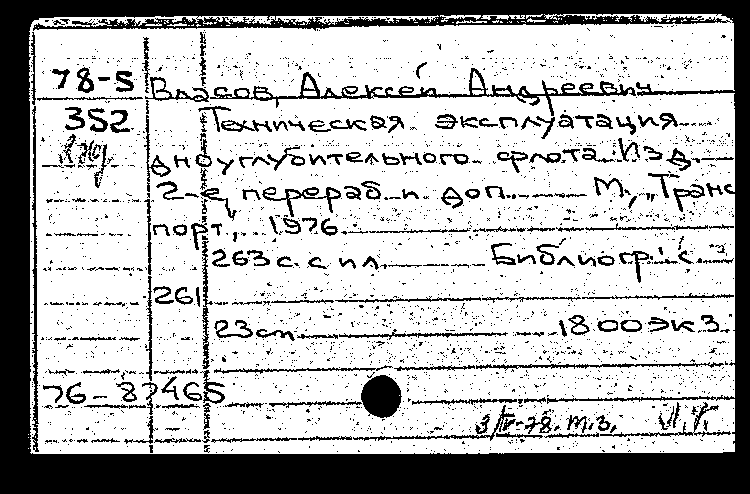 78-5 Власов, Алексей Андреевич
352 Техническая эксплуатация
дноуглубительного флота. Изд.
2-е, перераб. и доп. М., „Транс
порт", 1976.
263 с. с ил. Библиогр.: с.
261
23 см 1800 экз.
76-87465
3/IV-78. т.з.